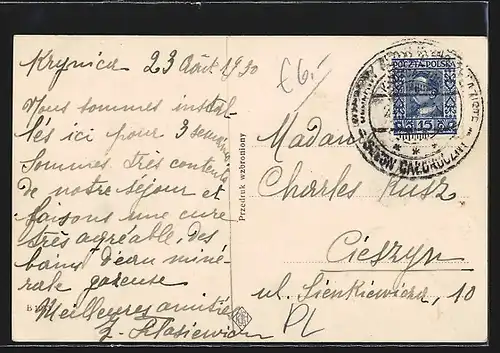 Krynica 23 Août 1930
Vous sommes instal
lés ici pour 3 semaines
Sommes très contents
de notre séjour et
faisons une cure
très agréable, des
bains d'eau miné-
rale gazeuse
Meilleures amitiés
Przedruk wzbroniony
£6.
POCZTA POLSKA
15
SEZON CAŁOROCZNY
Madame
Charles Kusz
Cieszyn
ul. Sienkiewicza, 10
PL